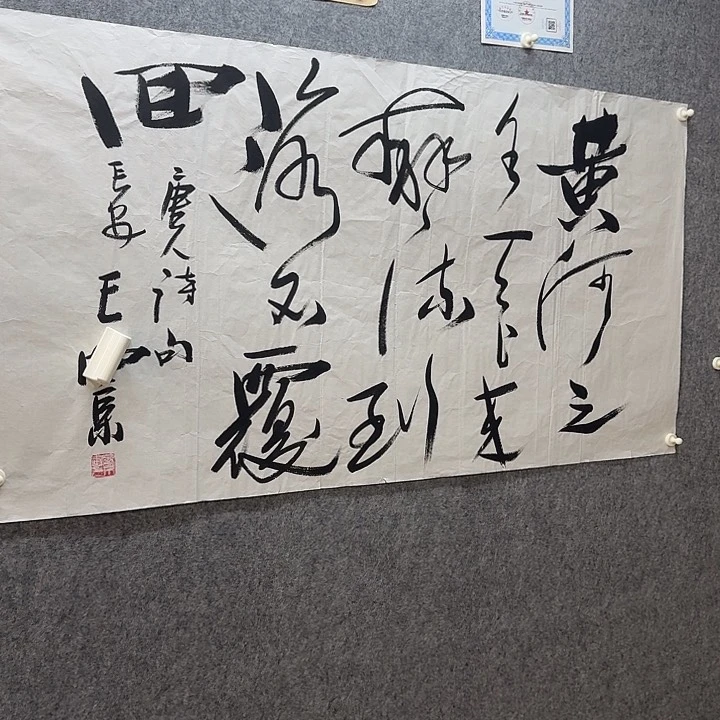 黄河之
水天上来
奔流到
海不覆
回
唐人诗句
長安王